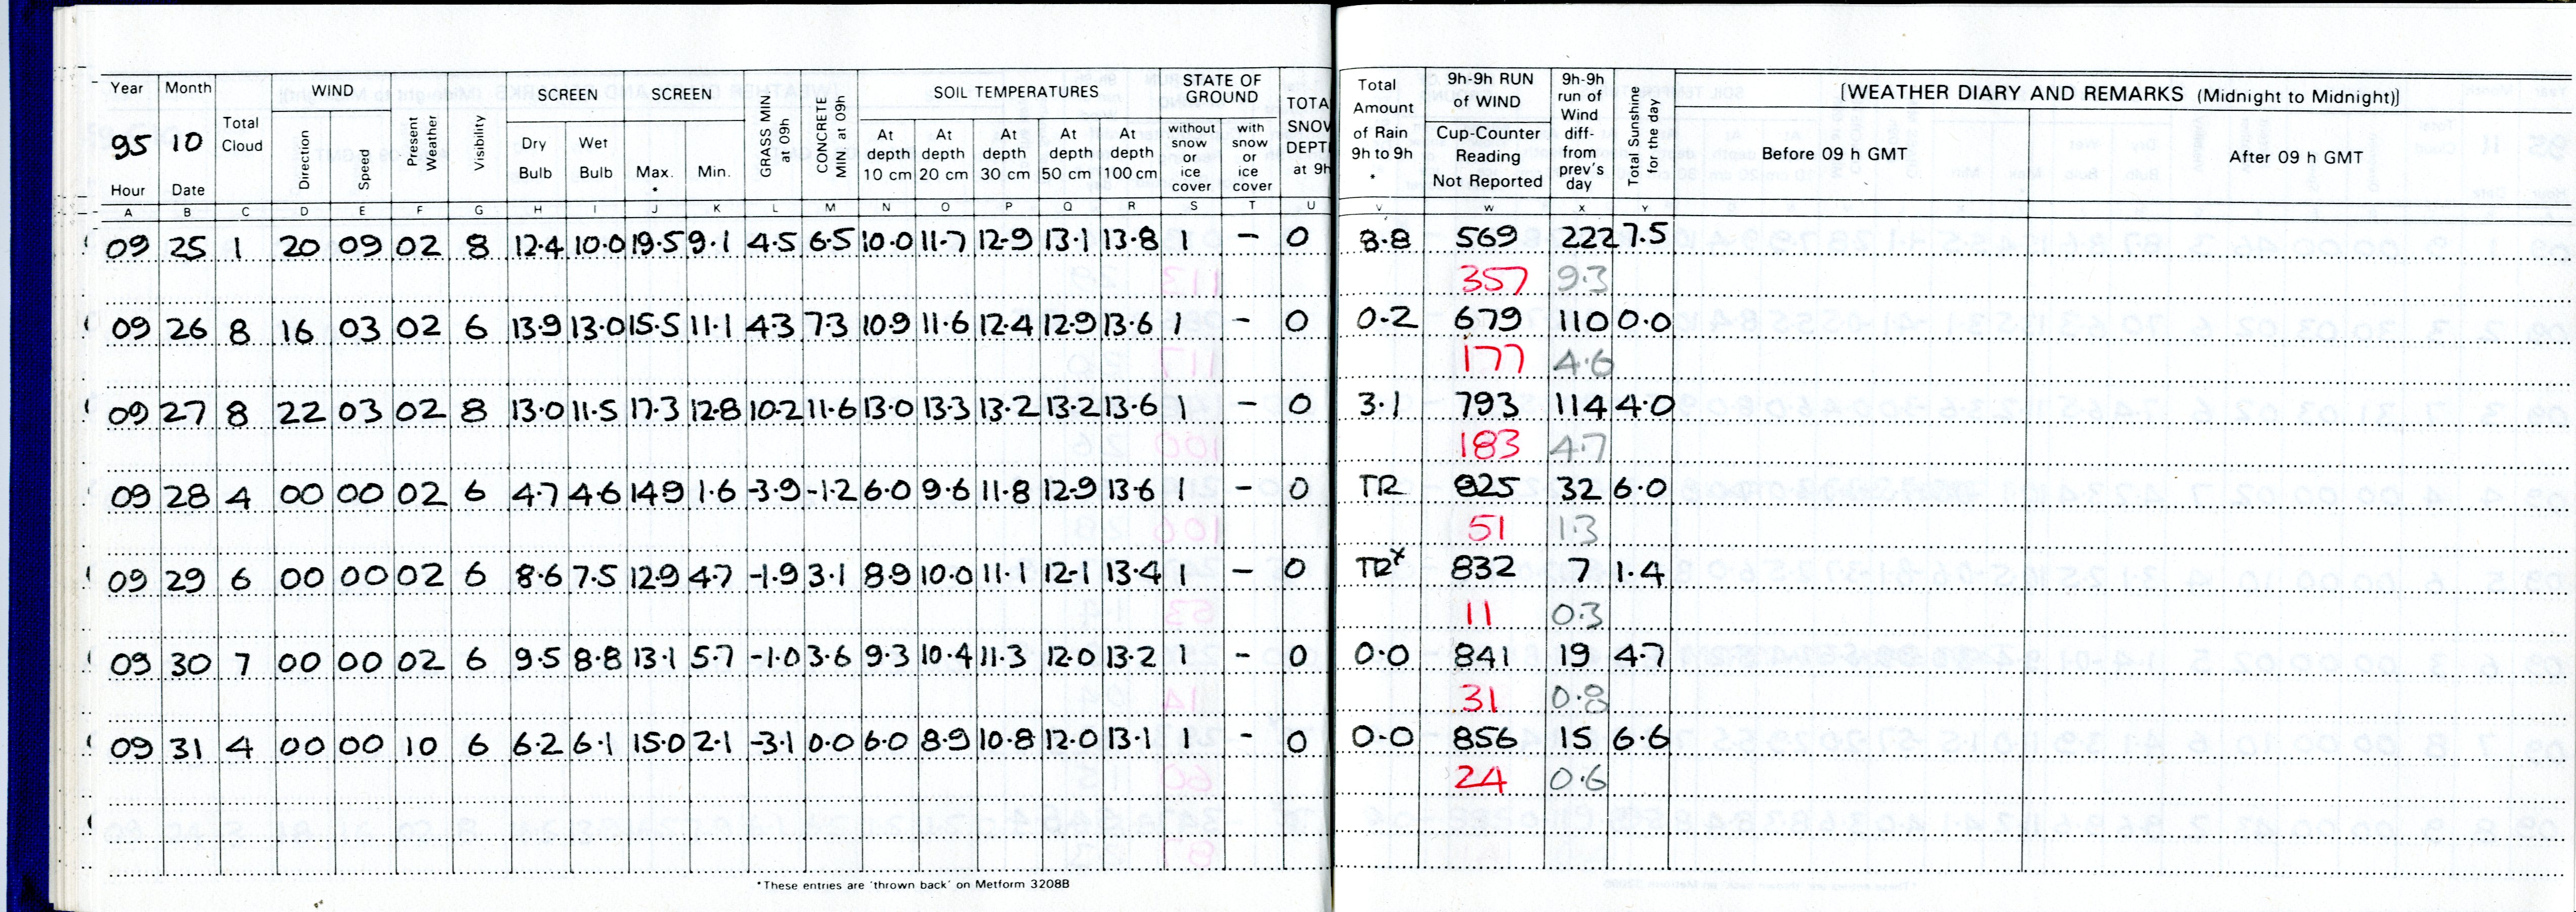 Year Month WIND SCREEN SCREEN GRASS MIN. at 09h CONCRETE MIN at 09h SOIL TEMPERATURES STATE OF GROUND TOTA SNOW DEPT at 9h Total Amount of Rain 9h to 9h * 9h-9h RUN of WIND 9h-9h run of Wind diff- from prev's day Total Sunshine for the day [WEATHER DIARY AND REMARKS (Midnight to Midnight)]
95 10 Total Cloud Direction Speed Present Weather Visibility Dry Bulb Wet Bulb Max. * Min. At depth 10 cm At depth 20 cm At depth 30 cm At depth 50 cm At depth 100 cm without snow or ice cover with snow or ice cover Cup-Counter Reading Not Reported Before 09 h GMT After 09 h GMT
Hour Date
A B C D E F G H I J K L M N O P Q R S T U V W X Y
09 25 1 20 09 02 8 12.4 10.0 19.5 9.1 4.5 6.5 10.0 11.7 12.9 13.1 13.8 1 - 0 8.8 569 222 7.5
357 9.3
09 26 8 16 03 02 6 13.9 13.0 15.5 11.1 4.3 7.3 10.9 11.6 12.4 12.9 13.6 1 - 0 0.2 679 110 0.0
177 4.6
09 27 8 22 03 02 8 13.0 11.5 17.3 12.8 10.2 11.6 13.0 13.3 13.2 13.2 13.6 1 - 0 3.1 793 114 4.0
183 4.7
09 28 4 00 00 02 6 4.7 4.6 14.9 1.6 -3.9 -1.2 6.0 9.6 11.8 12.9 13.6 1 - 0 TR 825 32 6.0
51 1.3
09 29 6 00 00 02 6 8.6 7.5 12.9 4.7 -1.9 3.1 8.9 10.0 11.1 12.1 13.4 1 - 0 TRx 832 7 1.4
11 0.3
09 30 7 00 00 02 6 9.5 8.8 13.1 5.7 -1.0 3.6 9.3 10.4 11.3 12.0 13.2 1 - 0 0.0 841 19 4.7
31 0.8
09 31 4 00 00 10 6 6.2 6.1 15.0 2.1 -3.1 0.0 6.0 8.9 10.8 12.0 13.1 1 - 0 0.0 856 15 6.6
24 0.6
*These entries are 'thrown back' on Metform 3208B